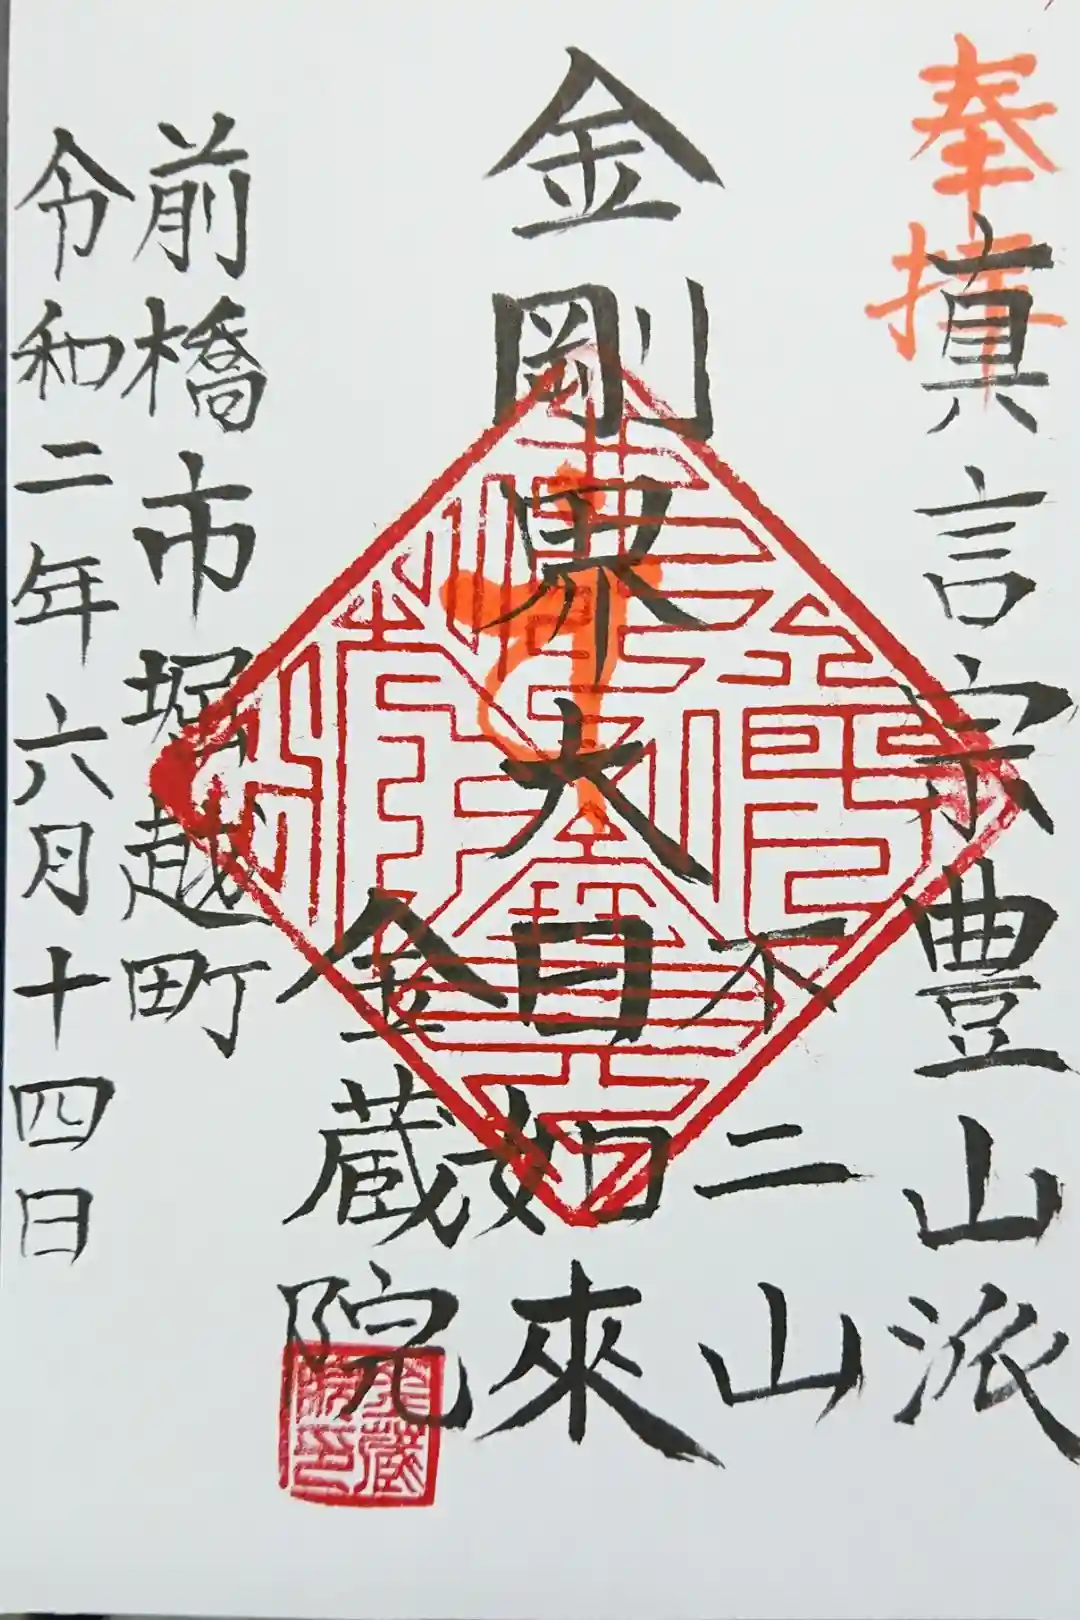 奉拝
眞言宗豊山派
不二山
金剛界大日如來
金蔵院
前橋市堀越町
令和二年六月十四日